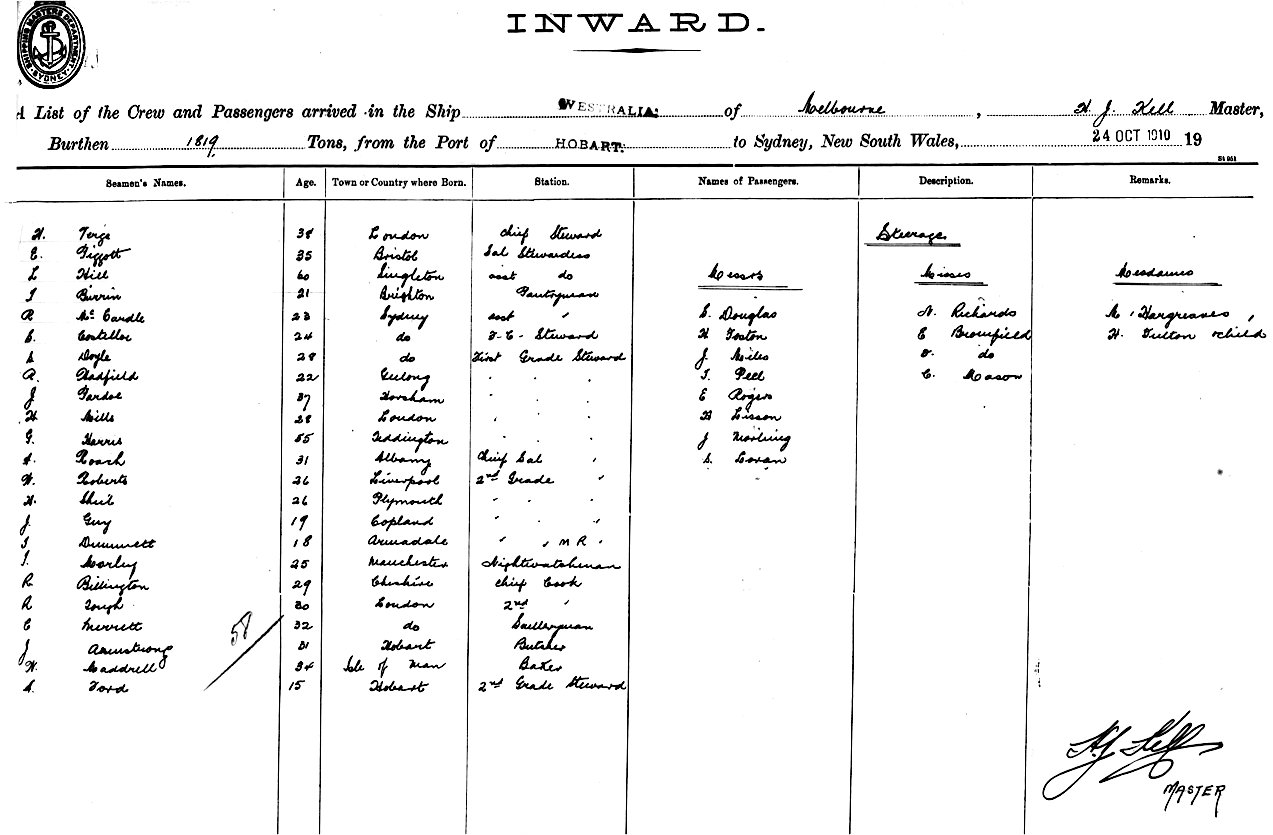 SHIPPING MASTERS DEPARTMENT SYDNEY
INWARD.
A List of the Crew and Passengers arrived in the Ship WESTRALIA. of Melbourne, H. J. Kell Master,
Burthen 1819 Tons, from the Port of HOBART. to Sydney, New South Wales, 24 OCT 1910 19
Seamen's Names. Age. Town or Country where Born. Station. Names of Passengers. Description. Remarks.
H. 38 London Chief Steward Steerage
E. Piggott 35 Bristol Sal Stewardess
L Hill 60 Singleton asst do Messrs Misses Mesdames
21 Brighton Pantryman
R. McCardle 23 Sydney asst " S. Douglas N. Richards M. Hargreaves
C. Costelloe 24 do F. C. Steward H Foston E Bromfield H. Fulton &child
Doyle 28 do First Grade Steward J. Miles do
R. Hadfield 22 Geelong T. Peel C. Mason
J Pardoe 37 Horsham E Rogers
H Mills 28 London H Lisson
G. Harris 55 Teddington J
A. Roach 31 Albany Chief Sal "
W. Roberts 26 Liverpool 2nd Grade "
H. Sheil 26 Plymouth
J. Guy 19 Copland
Dummett 18 Armadale " " M R "
Morley 25 Manchester Nightwatchman
R Billington 29 Cheshire Chief Cook
R Tough 30 London 2nd "
C Merrett 32 do Sculleryman
58
J Armstrong 31 Hobart Butcher
W. Maddrell 34 Isle of Man Baker
A. Ford 15 Hobart 2nd Grade Steward
H J Kell
MASTER